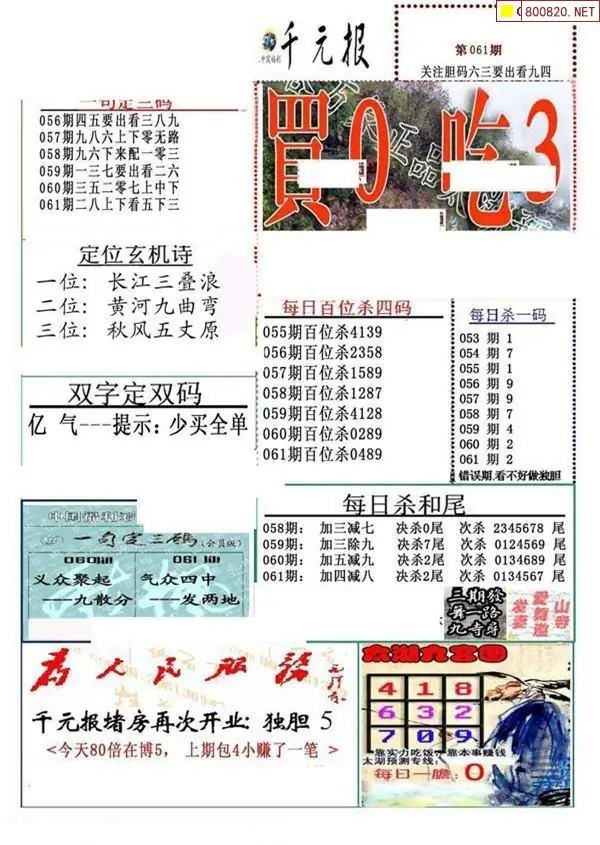 800820.NET
千元报
第061期
关注胆码六三要出看九四
一句定三码
056期四五要出看三八九
057期九八六上下零无路
058期九六下来配一零三
059期一三七要出看二六
060期三五二零七上中下
061期二八上下看五下三
買0 吃3
定位玄机诗
一位: 长江三叠浪
二位: 黄河九曲弯
三位: 秋风五丈原
每日百位杀四码
055期百位杀4139
056期百位杀2358
057期百位杀1589
058期百位杀1287
059期百位杀4128
060期百位杀0289
061期百位杀0489
每日杀一码
053 期 1
054 期 7
055 期 1
056 期 9
057 期 9
058 期 7
059 期 4
060 期 2
061 期 2
错误期,看不好做独胆
双字定双码
亿 气---提示: 少买全单
每日杀和尾
058期: 加三减七 决杀0尾 次杀 2345678 尾
059期: 加三除九 决杀7尾 次杀 0124569 尾
060期: 加五减九 决杀2尾 次杀 0134689 尾
061期: 加四减八 决杀2尾 次杀 0134567 尾
中国福利彩
一句定三码(会员版)
060期
义众聚起
---九散分
061期
气众四中
---发两地
三期發
算一路
九寺尋
山寺
为人民服务
千元报堵房再次开业: 独胆 5
<今天80倍在博5, 上期包4小赚了一笔 >
太湖九宫图
4 1 8
6 3 2
7 0 9
靠实力吃饭, 靠本事赚钱
太湖预测专线:
每日一胆: 0